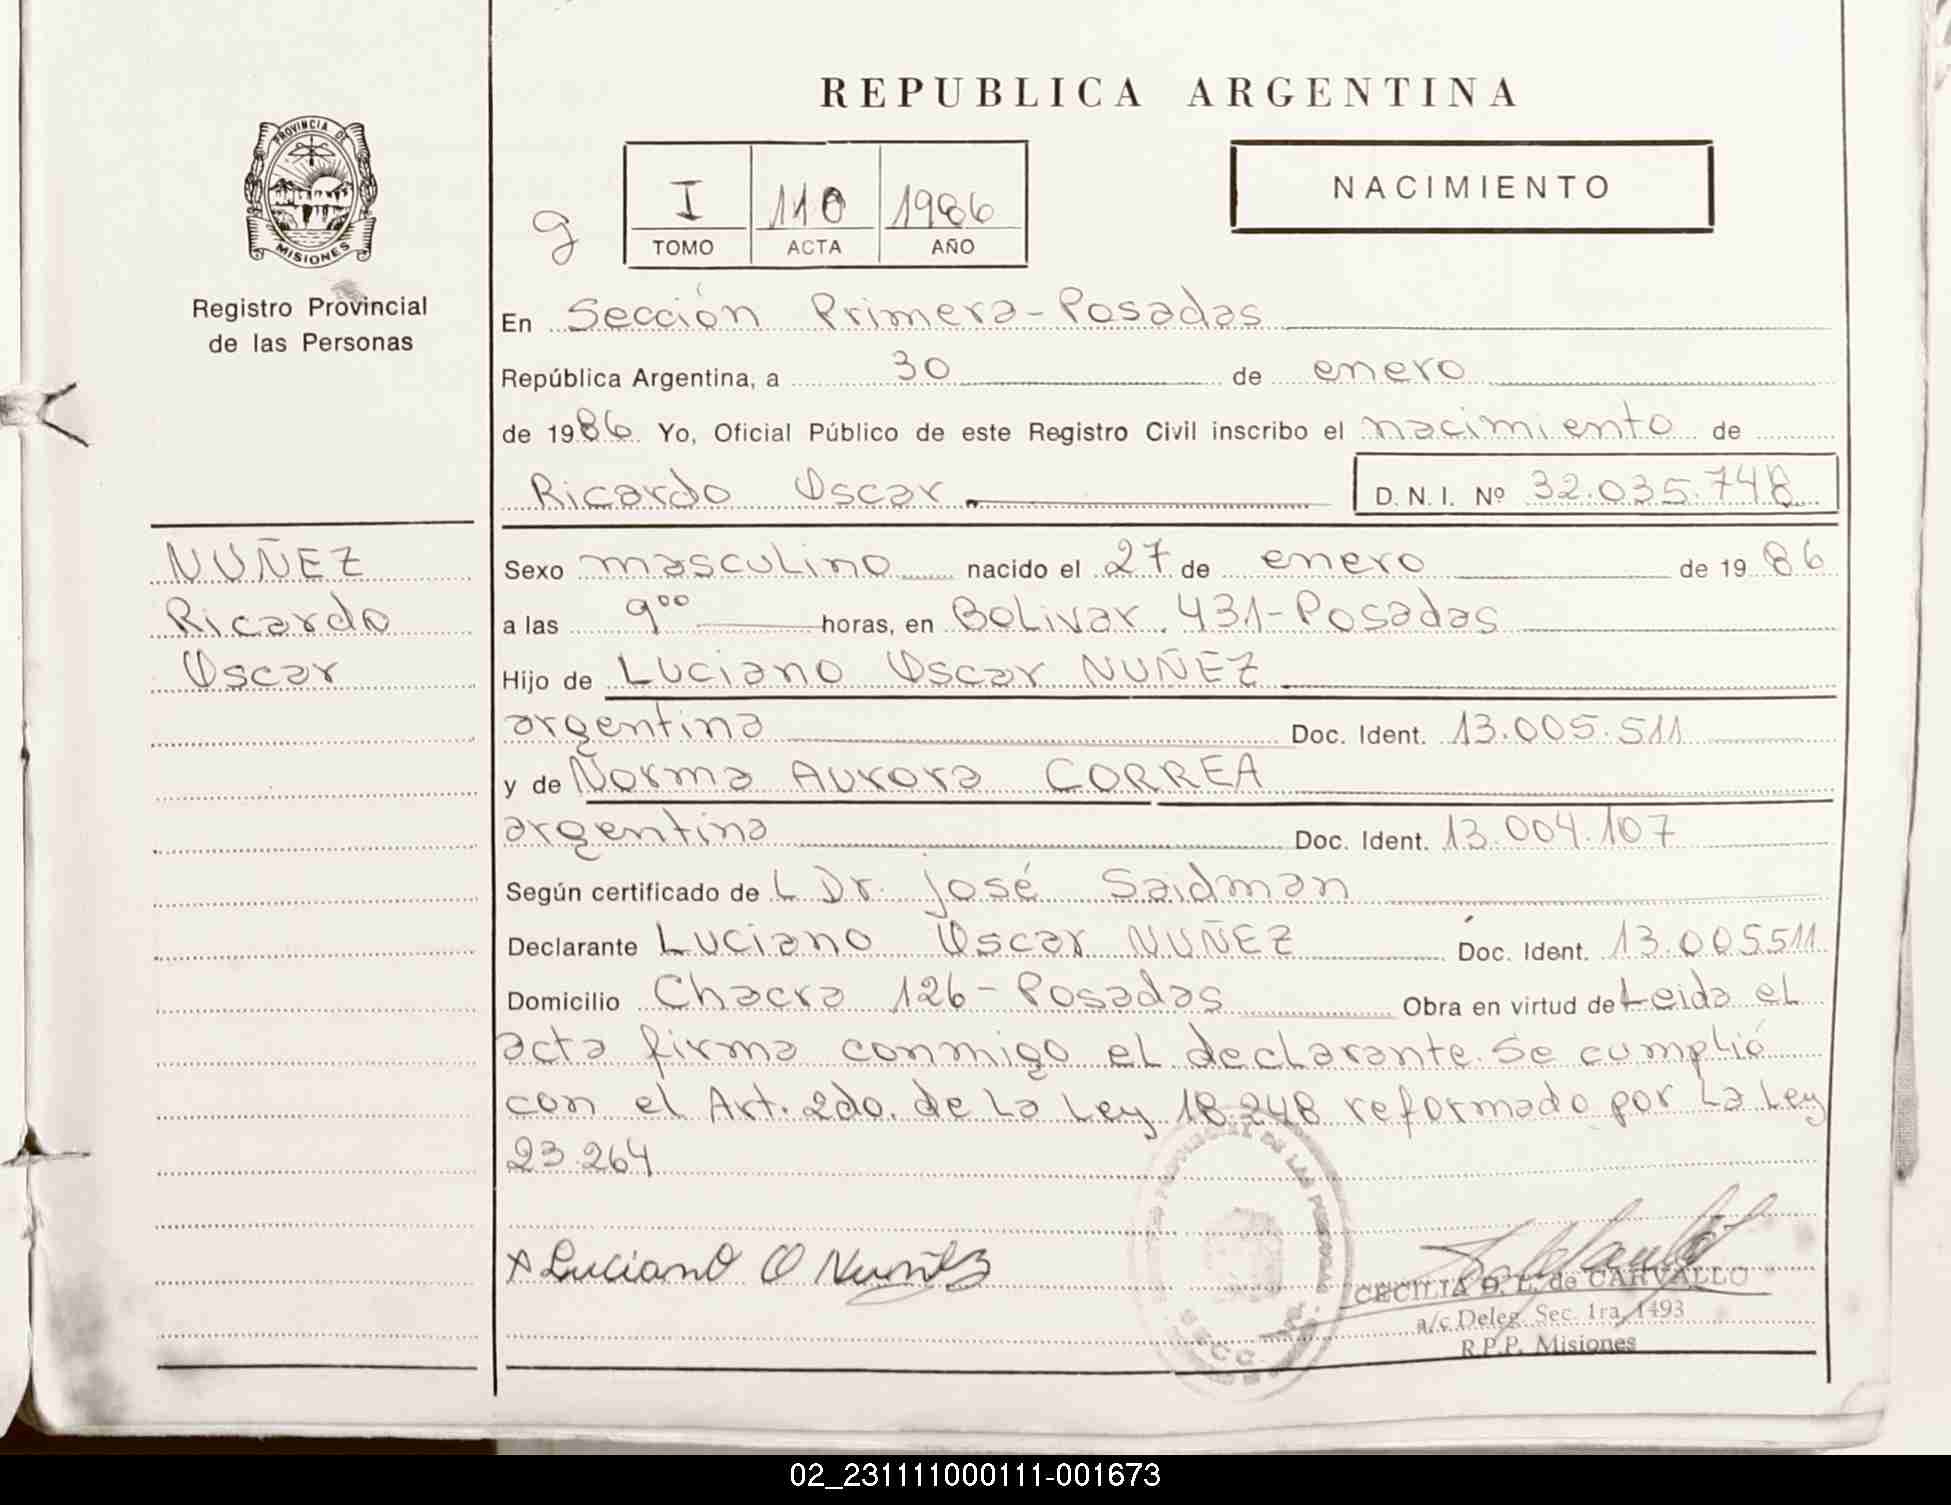 REPUBLICA ARGENTINA
PROVINCIA DE
MISIONES
Registro Provincial
de las Personas
g
I 110 1986
TOMO ACTA AÑO
NACIMIENTO
En Sección Primera-Posadas
República Argentina, a 30 de enero
de 1986 Yo, Oficial Público de este Registro Civil inscribo el nacimiento de
Ricardo Oscar D. N. I. Nº 32.035.748
NUÑEZ
Ricardo
Oscar
Sexo masculino nacido el 27 de enero de 1986
a las 9⁰⁰ horas, en Bolivar 431-Posadas
Hijo de Luciano Oscar NUÑEZ
argentina Doc. Ident. 13.005.511
y de Norma Aurora CORREA
argentina Doc. Ident. 13.004.107
Según certificado de L Dr. José Saidman
Declarante Luciano Oscar NUÑEZ Doc. Ident. 13.005511
Domicilio Chacra 126-Posadas Obra en virtud de Leida el
acta firma conmigo el declarante. Se cumplió
con el Art. 2do. de la Ley 18.248 reformado por la Ley
23.264
x Luciano O Nuñez
CECILIA D. L. de CARVALLO
a/c Deleg. Sec. 1ra. 1493
R.P.P. Misiones
02_231111000111-001673